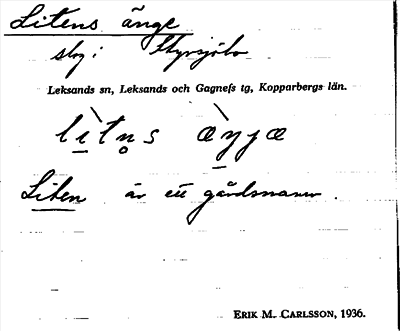 Litens änge
slog i Styrsjöbo
Leksands sn, Leksands och Gagnefs tg, Kopparbergs län.
lìtn̥s æ̀yjæ
Liten är ett gårdsnamn.
ERIK M. CARLSSON, 1936.